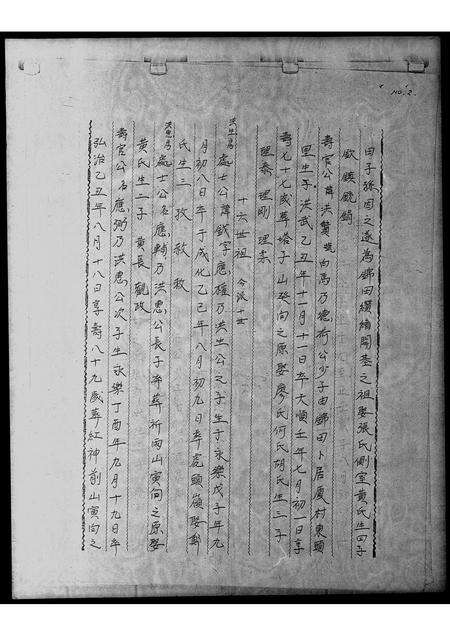 NO.2
田子孫因之遂為錦田纘緒開基之祖娶張氏側室黃氏生四子
欽鎮銳鍋
壽官公諱洪贄號向馬乃德荷公少子由錦田卜居廈村東頭
里生于洪武乙丑年十一月十一日卒天順壬午年七月初一日享
壽七十七歲葬塔子山癸向之原娶廖氏何氏胡氏生三子
理泰 理剛 理宗
十六世祖 今派十世
洪生房 處士公諱欽字應權乃洪生公之子生于永樂戊子年九
月初八日卒于成化乙巳年八月初九日葬虎頭嶺娶鄰
氏生三 孜 敘 敦
洪惠房 處士公名應輔乃洪惠公長子卒葬祈雨山寅向之原娶
黃氏生二子 黃長 觀政
壽官公名應弼乃洪惠公次子生永樂丁酉年九月十九日卒
弘治乙丑年八月十八日享壽八十九歲葬紅神前山寅向之